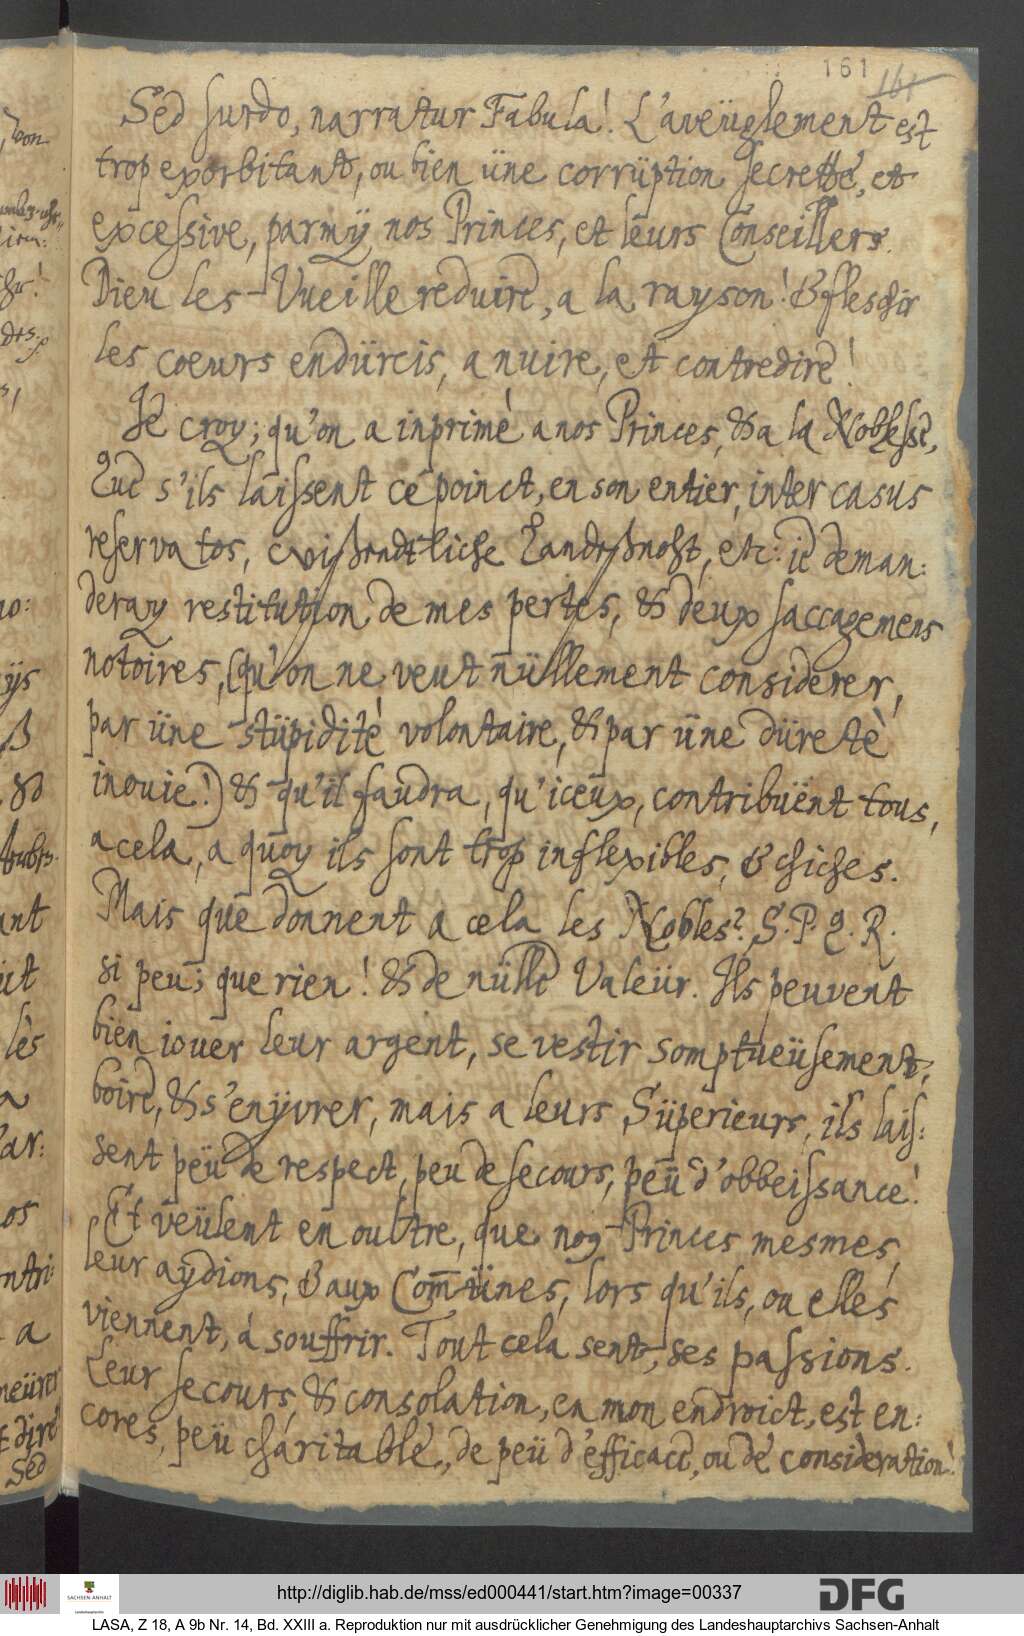 161
161
Sed surdo, narratur Fabula! L'aveüglement est
trop exorbitant, ou bien üne corrüption secrette, et
excessive, parmÿ nos Princes, et leurs Conseillers.
Dieu les Vueille reduire, a la rayson! & fleschir
les coeurs endürcis, a nuire, et contredire!
Je croy; qu'on a inprimè a nos Princes, & a la Noblesse,
Que s'ils laissent ce poinct, en son entier, inter casus
reservatos, etc: je deman:
deray restitution de mes pertes, & deux saccagemens
notoires, (qu'on ne veut nüllement considerer,
par üne stüpiditè volontaire, & par üne düretè
inouie!) & qu'il faudra, qu'iceux, contribuënt tous,
a cela, a quoy ils sont trop inflexibles, & chiches.
Mais que donnent a cela les Nobles? S. P. Q. R.
si peu; que rien! & de nülle Valeür. Ils peuvent
bien iouer leur argent, se vestir somptueüsement,
boire, & s'enÿvrer, mais a leurs Süperieurs, ils lais:
sent peü de respect, peu de secours, peü d'obbeissance!
Et veülent en oultre, que nos Princes mesmes,
leur aÿdions, & aux Com̅ünes, lors qu'ils, ou elles
viennent, á souffrir. Tout cela sent, ses passions.
Leur secours, & consolation, en mon endroict, est en:
cores, peü charitable, de peü d'efficace, ou de consideration!
von
ÿs
ant
les
a
ar:
os
ntri:
a
dire
Sed
SACHSEN-ANHALT
Landeshauptarchiv
http://diglib.hab.de/mss/ed000441/start.htm?image=00337
DFG
LASA, Z 18, A 9b Nr. 14, Bd. XXIII a. Reproduktion nur mit ausdrücklicher Genehmigung des Landeshauptarchivs Sachsen-Anhalt